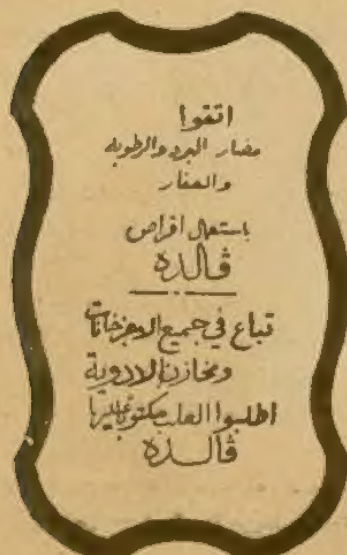 اتقوا
مضار البرد والرطوبه
والغبار
باستعمال اقراص
ڤالده
تباع في جميع الاجزخانات
ومخازن الادوية
اطلبوا العلب مكتوبا عليها
ڤالده